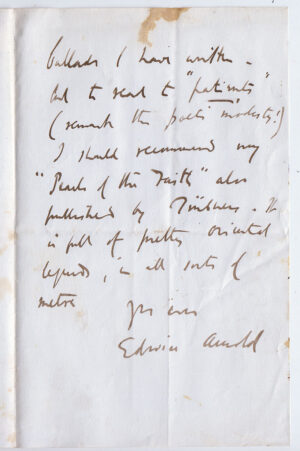 ballads I have written.
But to read to "patients"
(remark the poets modesty!)
I should recommend my
"Pearls of the Faith" also
published by Trübners. It
is full of pretty oriental
legends, in all sorts of
metre
Yrs ever
Edwin Arnold